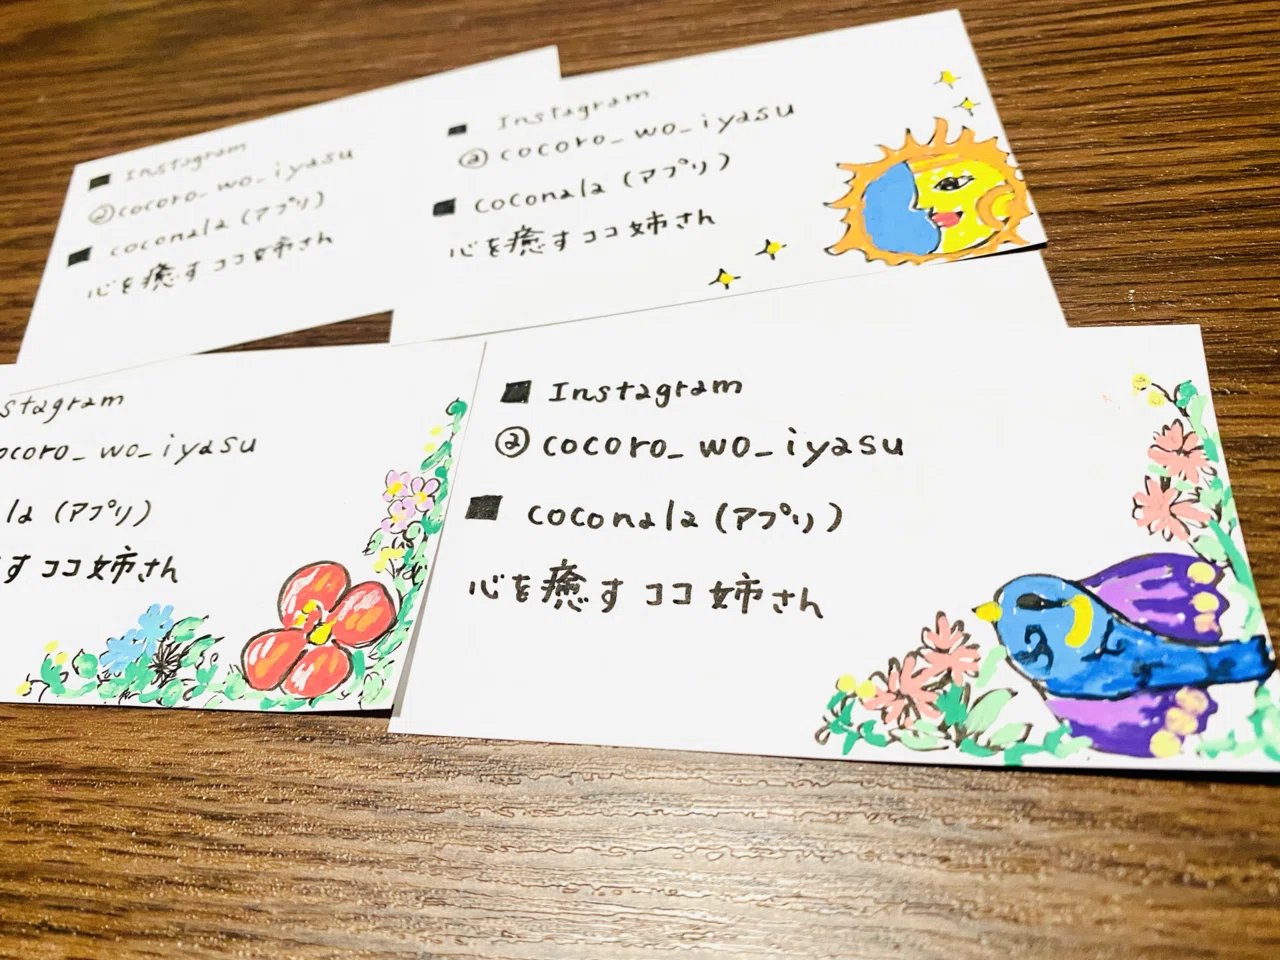 ■ Instagram
@cocoro_wo_iyasu
■ coconala (アプリ)
心を癒すココ姉さん
■ Instagram
@cocoro_wo_iyasu
■ coconala (アプリ)
心を癒すココ姉さん
stagram
ocoro_wo_iyasu
la (アプリ)
すココ姉さん
■ Instagram
@cocoro_wo_iyasu
■ coconala (アプリ)
心を癒すココ姉さん